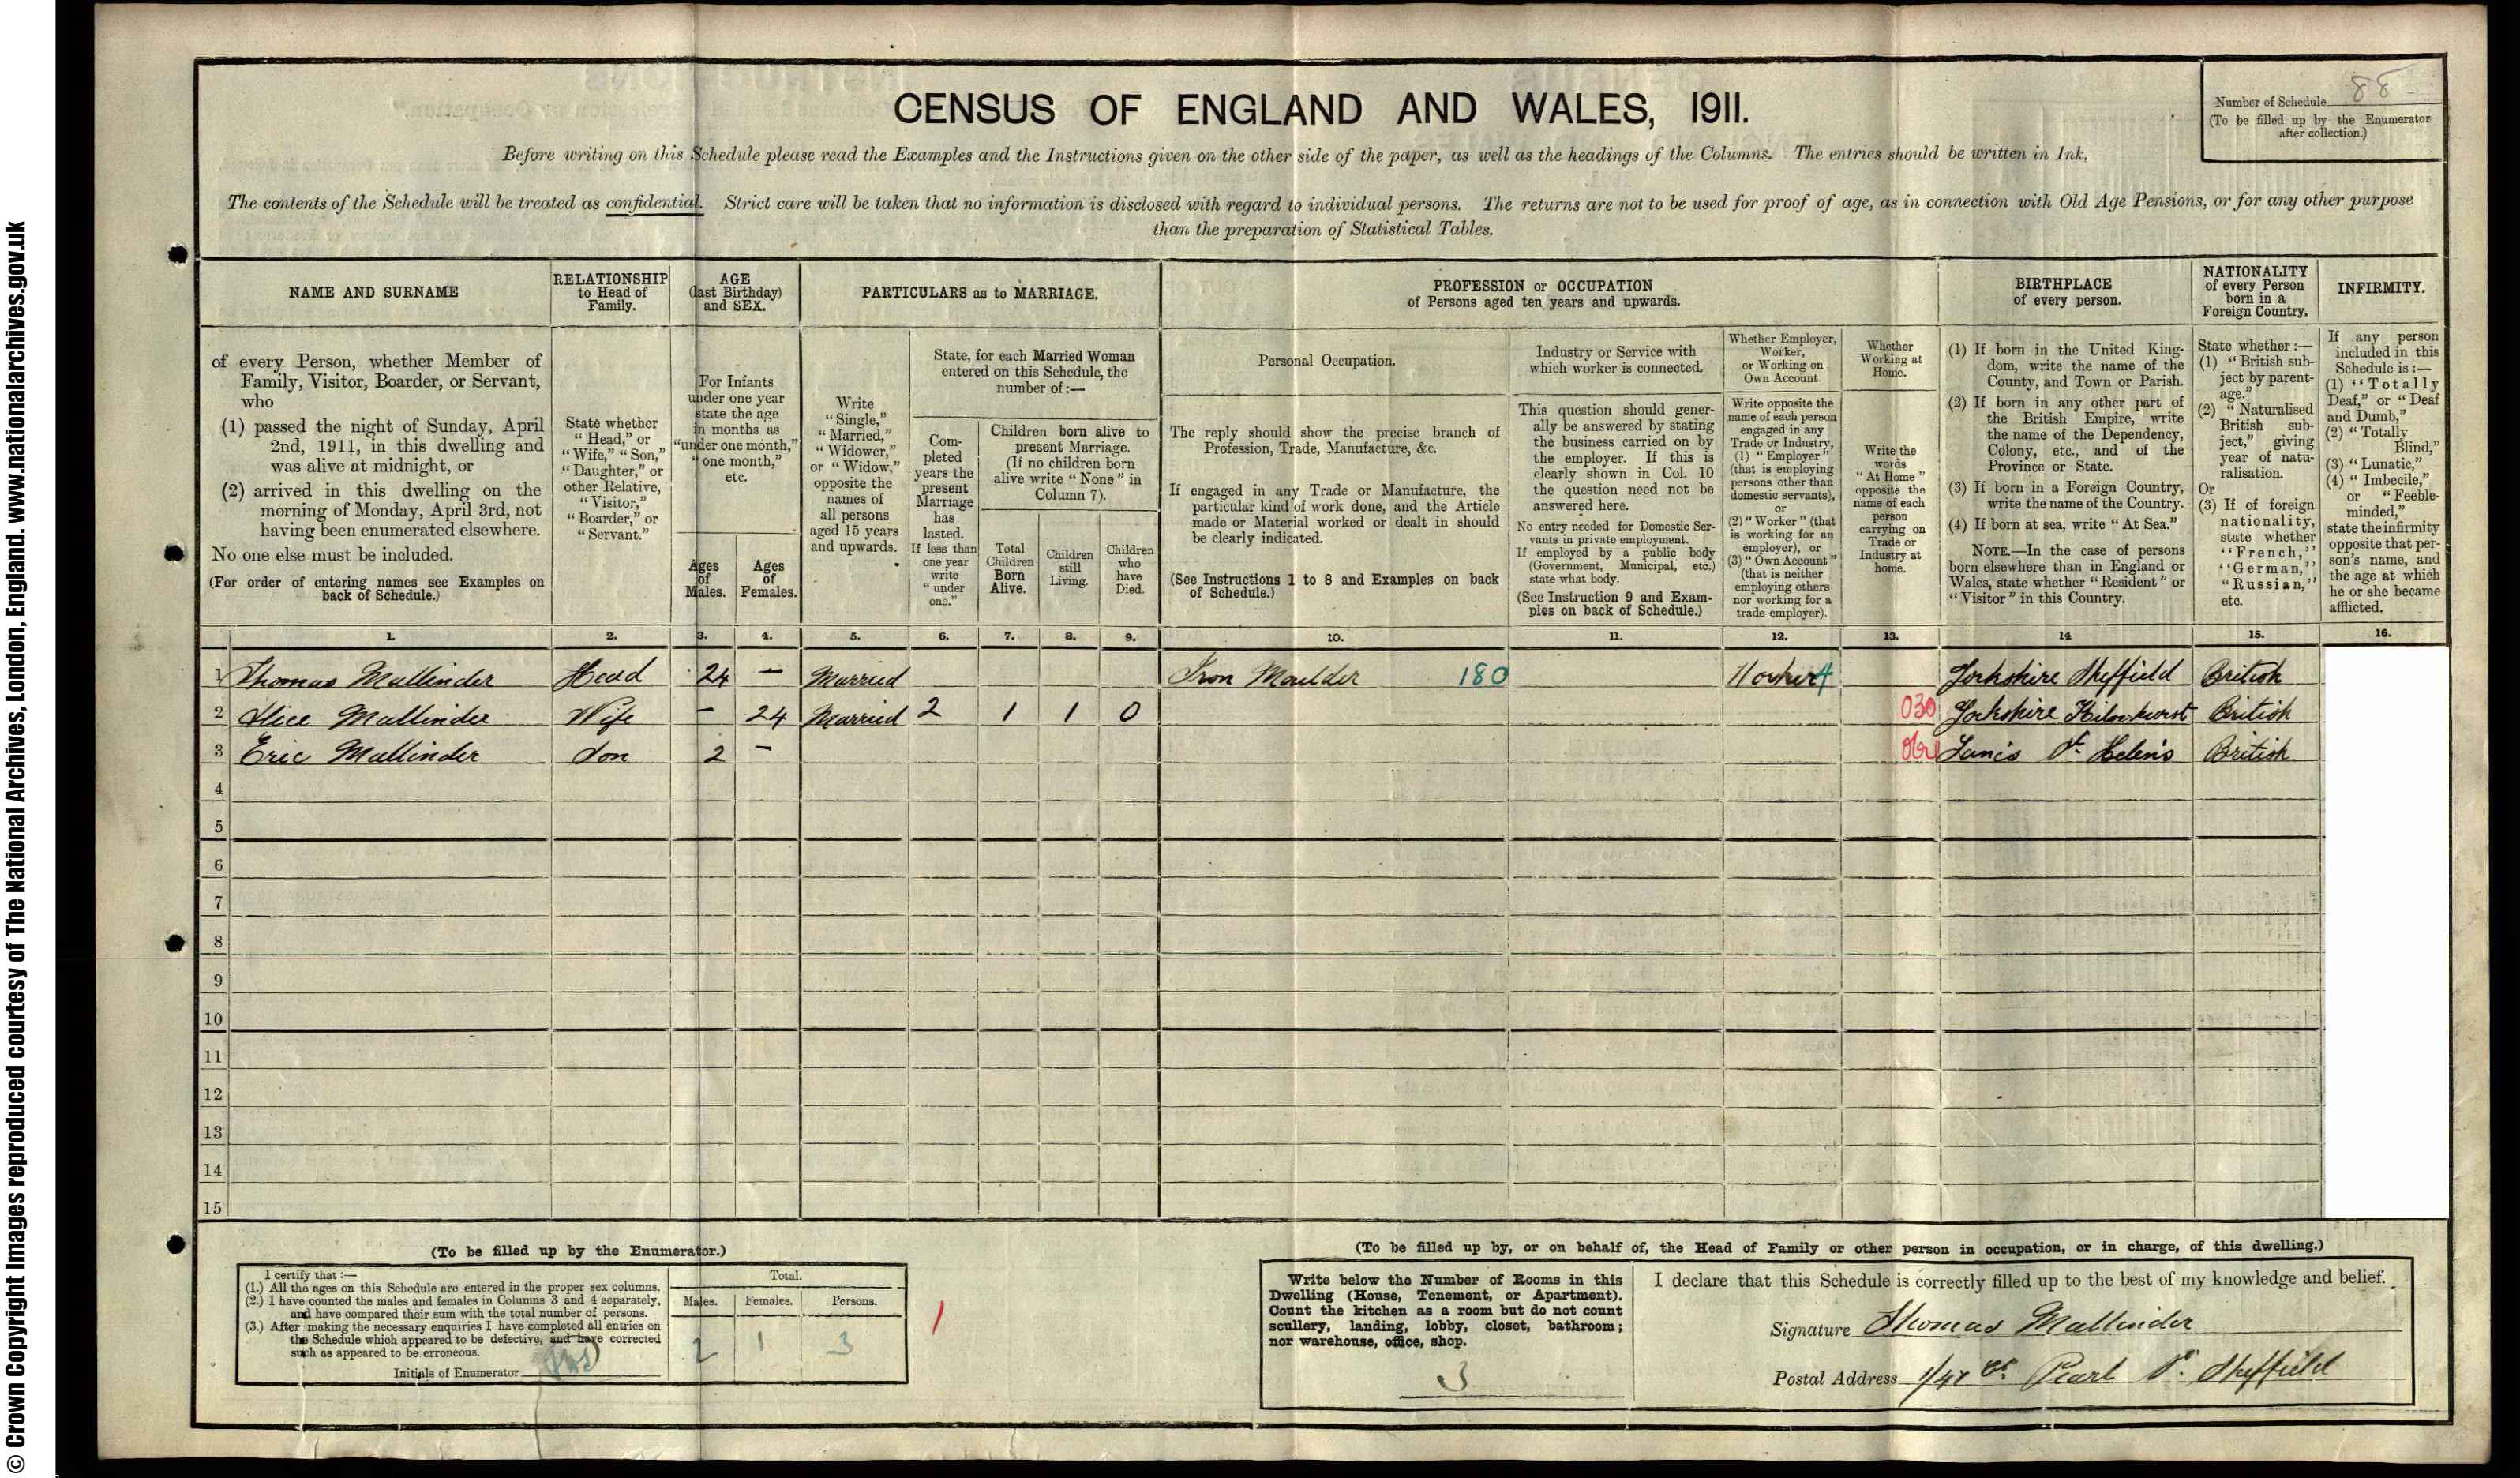 © Crown Copyright Images reproduced courtesy of The National Archives, London, England. www.nationalarchives.gov.uk
CENSUS OF ENGLAND AND WALES, 1911.
Number of Schedule 88
(To be filled up by the Enumerator
after collection.)
Before writing on this Schedule please read the Examples and the Instructions given on the other side of the paper, as well as the headings of the Columns. The entries should be written in Ink.
The contents of the Schedule will be treated as confidential. Strict care will be taken that no information is disclosed with regard to individual persons. The returns are not to be used for proof of age, as in connection with Old Age Pensions, or for any other purpose
than the preparation of Statistical Tables.
NAME AND SURNAME
RELATIONSHIP
to Head of
Family.
AGE
(last Birthday)
and SEX.
PARTICULARS as to MARRIAGE.
PROFESSION or OCCUPATION
of Persons aged ten years and upwards.
BIRTHPLACE
of every person.
NATIONALITY
of every Person
born in a
Foreign Country.
INFIRMITY.
of every Person, whether Member of
Family, Visitor, Boarder, or Servant,
who
(1) passed the night of Sunday, April
2nd, 1911, in this dwelling and
was alive at midnight, or
(2) arrived in this dwelling on the
morning of Monday, April 3rd, not
having been enumerated elsewhere.
No one else must be included.
(For order of entering names see Examples on
back of Schedule.)
State whether
"Head," or
"Wife," "Son,"
"Daughter," or
other Relative,
"Visitor,"
"Boarder," or
"Servant."
For Infants
under one year
state the age
in months as
"under one month,"
"one month,"
etc.
Ages
of
Males.
Ages
of
Females.
Write
"Single,"
"Married,"
"Widower,"
or "Widow,"
opposite the
names of
all persons
aged 15 years
and upwards.
State, for each Married Woman
entered on this Schedule, the
number of:—
Com-
pleted
years the
present
Marriage
has
lasted.
If less than
one year
write
"under
one."
Children born alive to
present Marriage.
(If no children born
alive write "None" in
Column 7).
Total
Children
Born
Alive.
Children
still
Living.
Children
who
have
Died.
Personal Occupation.
The reply should show the precise branch of
Profession, Trade, Manufacture, &c.
If engaged in any Trade or Manufacture, the
particular kind of work done, and the Article
made or Material worked or dealt in should
be clearly indicated.
(See Instructions 1 to 8 and Examples on back
of Schedule.)
Industry or Service with
which worker is connected.
This question should gener-
ally be answered by stating
the business carried on by
the employer. If this is
clearly shown in Col. 10
the question need not be
answered here.
No entry needed for Domestic Ser-
vants in private employment.
If employed by a public body
(Government, Municipal, etc.)
state what body.
(See Instruction 9 and Exam-
ples on back of Schedule.)
Whether Employer,
Worker,
or Working on
Own Account
Write opposite the
name of each person
engaged in any
Trade or Industry,
(1) "Employer"
(that is employing
persons other than
domestic servants),
or
(2) "Worker" (that
is working for an
employer), or
(3) "Own Account"
(that is neither
employing others
nor working for a
trade employer).
Whether
Working at
Home.
Write the
words
"At Home"
opposite the
name of each
person
carrying on
Trade or
Industry at
home.
(1) If born in the United King-
dom, write the name of the
County, and Town or Parish.
(2) If born in any other part of
the British Empire, write
the name of the Dependency,
Colony, etc., and of the
Province or State.
(3) If born in a Foreign Country,
write the name of the Country.
(4) If born at sea, write "At Sea."
NOTE.—In the case of persons
born elsewhere than in England or
Wales, state whether "Resident" or
"Visitor" in this Country.
State whether:—
(1) "British sub-
ject by parent-
age."
(2) "Naturalised
British sub-
ject," giving
year of natu-
ralisation.
Or
(3) If of foreign
nationality,
state whether
"French,"
"German,"
"Russian,"
etc.
If any person
included in this
Schedule is:—
(1) "Totally
Deaf," or "Deaf
and Dumb,"
(2) "Totally
Blind,"
(3) "Lunatic,"
(4) "Imbecile,"
or "Feeble-
minded,"
state the infirmity
opposite that per-
son's name, and
the age at which
he or she became
afflicted.
1. 2. 3. 4. 5. 6. 7. 8. 9. 10. 11. 12. 13. 14 15. 16.
1 Thomas Mallinder Head 24 — Married Iron Moulder 180 Worker 4 Yorkshire Sheffield British
2 Alice Mallinder Wife — 24 Married 2 1 1 0 030 Yorkshire Kilnhurst British
3 Eric Mallinder Son 2 — Lancs St. Helens British
4
5
6
7
8
9
10
11
12
13
14
15
(To be filled up by the Enumerator.)
I certify that:—
(1.) All the ages on this Schedule are entered in the proper sex columns.
(2.) I have counted the males and females in Columns 3 and 4 separately,
and have compared their sum with the total number of persons.
(3.) After making the necessary enquiries I have completed all entries on
the Schedule which appeared to be defective, and have corrected
such as appeared to be erroneous.
Initials of Enumerator
Total.
Males. Females. Persons.
2 1 3
1
(To be filled up by, or on behalf of, the Head of Family or other person in occupation, or in charge, of this dwelling.)
Write below the Number of Rooms in this
Dwelling (House, Tenement, or Apartment).
Count the kitchen as a room but do not count
scullery, landing, lobby, closet, bathroom;
nor warehouse, office, shop.
3
I declare that this Schedule is correctly filled up to the best of my knowledge and belief.
Signature Thomas Mallinder
Postal Address 1/47 Ct. Pearl St. Sheffield